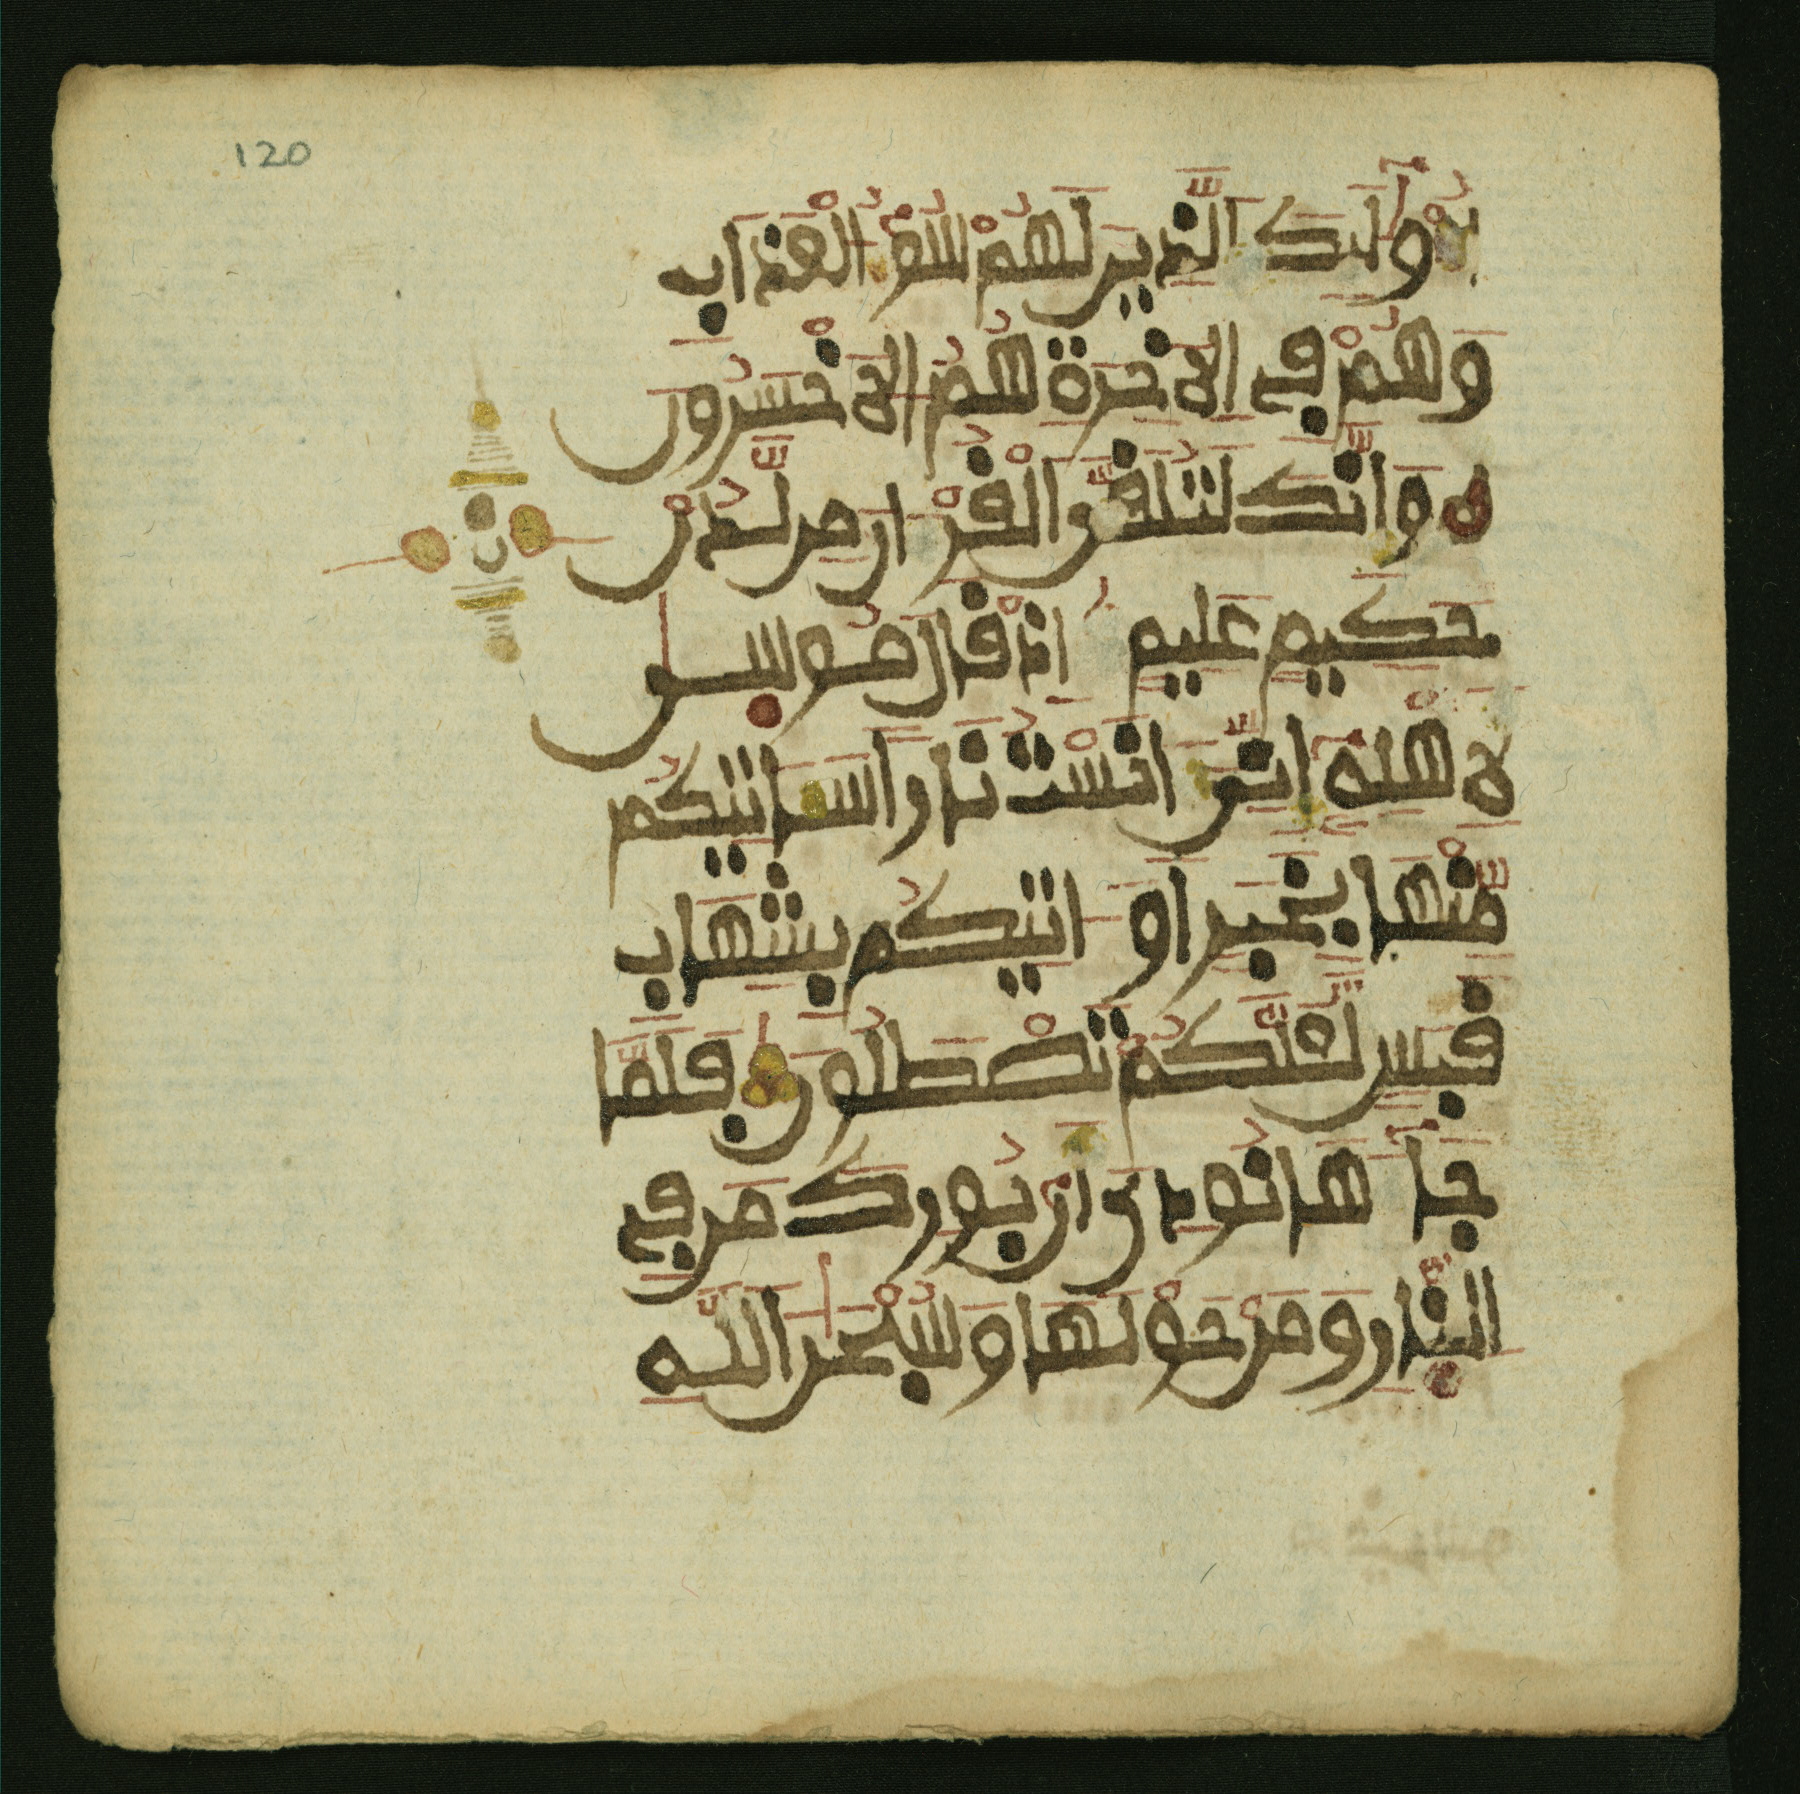 120
أُوْلَٰٓئِكَ ٱلَّذِينَ لَهُمْ سُوٓءُ ٱلْعَذَابِ
وَهُمْ فِي ٱلَاخِرَةِ هُمُ ٱلَاخْسَرُونَ
وَإِنَّكَ لَتُلَقَّى ٱلْقُرْءَانَ مِن لَّدُنْ
حَكِيمٍ عَلِيمٍ إِذْ قَالَ مُوسَىٰ
لِأَهْلِهِۦٓ إِنِّىَ ءَانَسْتُ نَارًا سَـَٔاتِيكُم
مِّنْهَا بِخَبَرٍ اَوَ اتِيكُم بِشِهَابِ
قَبَسٍ لَّعَلَّكُمْ تَصْطَلُونَ فَلَمَّا
جَآءَهَا نُودِيَ أَنۢ بُورِكَ مَن فِي
ٱلنَّارِ وَمَنْ حَوْلَهَا وَسُبْحَٰنَ ٱللَّهِ